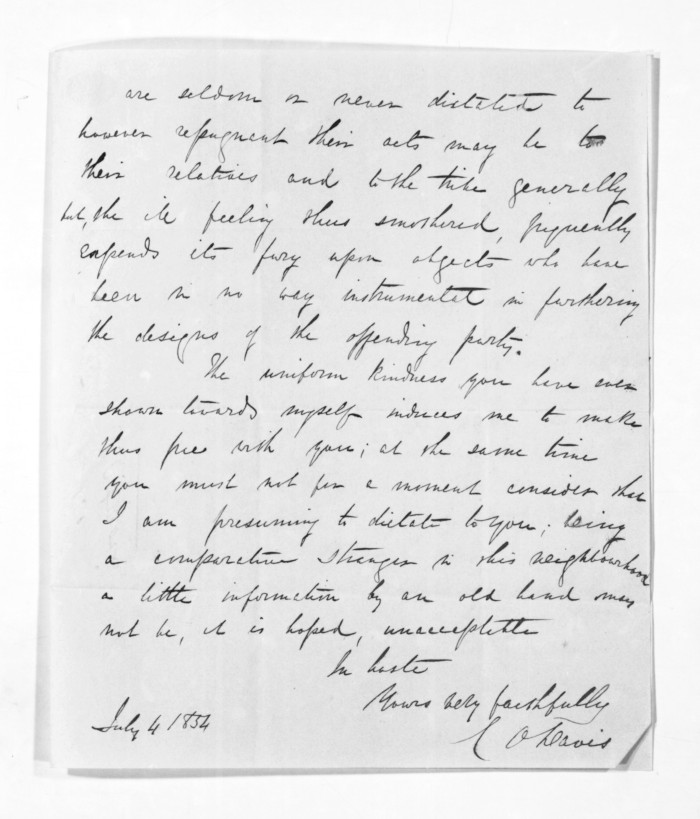 are seldom or never dictated to
however repugnant their acts may be to
their relatives and to the tribe generally
but, the ill feeling thus smothered, frequently
expends its fury upon objects who have
been in no way instrumental in furthering
the designs of the offending party.
The uniform kindness you have ever
shown towards myself induces me to make
thus free with you; at the same time
you must not for a moment consider that
I am presuming to dictate to you; being
a comparative stranger in this neighbourhood
a little information by an old hand may
not be, it is hoped, unacceptable
In haste
Yours very faithfully
C O Davis
July 4 1854